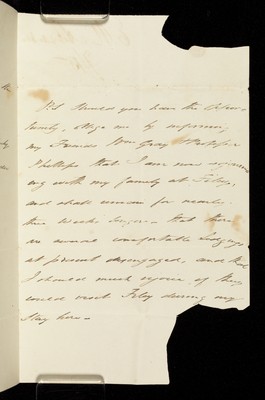 P.S. Should you have the oppor-
tunity, oblige me by informing
my Friends Wm. Gray & Professor
Phillips that I am now sojourn
ing with my family at Filey,
and shall remain for nearly
three weeks longer - that there
are several comfortable Lodgings
at present disengaged, and that
I should much rejoice if they
could visit Filey during my
stay here -